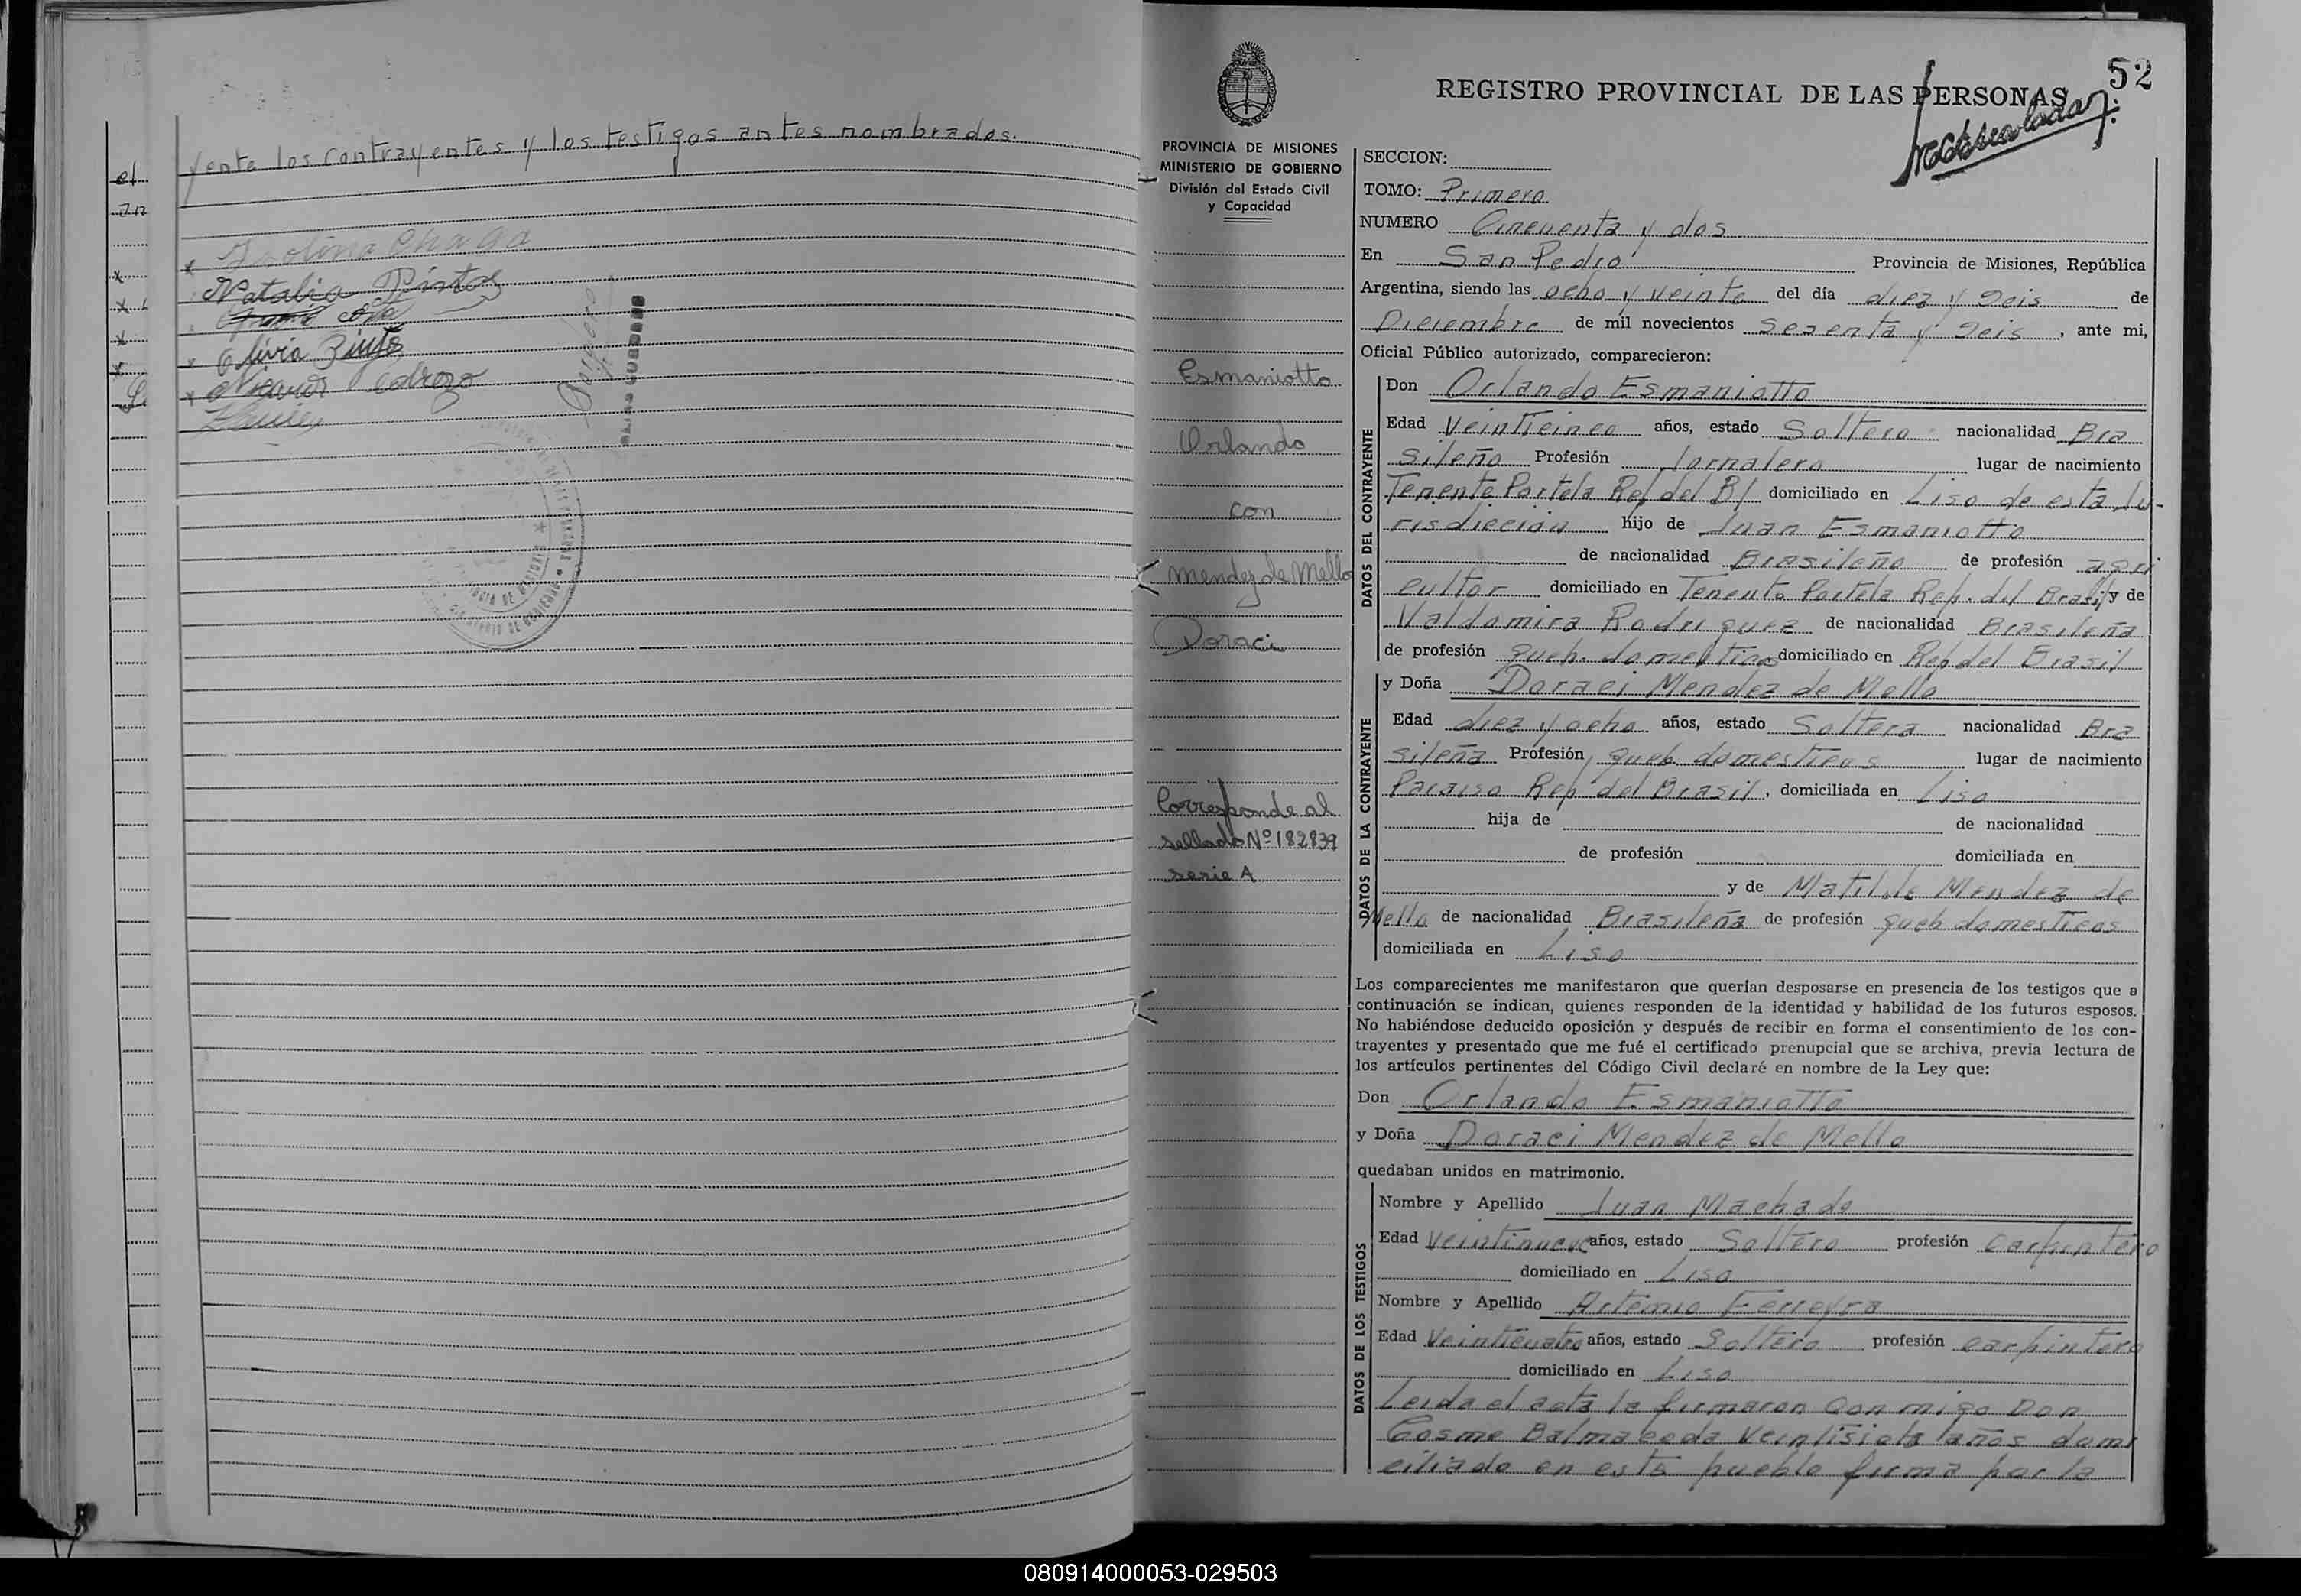 yente los contrayentes y los testigos antes nombrados.
el
an
Isolina Chaga
Natalia Pintos
Olivia Pinto
Nicanor Pedrozo
52
REGISTRO PROVINCIAL DE LAS PERSONAS
PROVINCIA DE MISIONES
MINISTERIO DE GOBIERNO
División del Estado Civil
y Capacidad
Esmaniotto
Orlando
con
Mendez de Mello
Doraci
Corresponde al
sellado Nº 182839
serie A
SECCION:
TOMO: Primero
NUMERO Cincuenta y dos
En San Pedro Provincia de Misiones, República
Argentina, siendo las ocho y veinte del día diez y seis de
Diciembre de mil novecientos sesenta y seis, ante mi,
Oficial Público autorizado, comparecieron:
DATOS DEL CONTRAYENTE
Don Orlando Esmaniotto
Edad Veinticinco años, estado Soltero nacionalidad Bra
sileño Profesión Jornalero lugar de nacimiento
Tenente Portela Rep del Br domiciliado en Liso de esta Ju-
risdicción hijo de Juan Esmaniotto
de nacionalidad Brasileño de profesión agri
cultor domiciliado en Tenente Portela Rep. del Brasil y de
Valdomira Rodriguez de nacionalidad Brasileña
de profesión queh. domesticos domiciliado en Rep del Brasil
DATOS DE LA CONTRAYENTE
y Doña Doraci Mendez de Mello
Edad diez y ocho años, estado Soltera nacionalidad Bra
sileña Profesión queh domesticos lugar de nacimiento
Paraiso Rep del Brasil, domiciliada en Liso
hija de de nacionalidad
de profesión domiciliada en
y de Matilde Mendez de
Mello de nacionalidad Brasileña de profesión queh domesticos
domiciliada en Liso
Los comparecientes me manifestaron que querían desposarse en presencia de los testigos que a
continuación se indican, quienes responden de la identidad y habilidad de los futuros esposos.
No habiéndose deducido oposición y después de recibir en forma el consentimiento de los con-
trayentes y presentado que me fué el certificado prenupcial que se archiva, previa lectura de
los artículos pertinentes del Código Civil declaré en nombre de la Ley que:
Don Orlando Esmaniotto
y Doña Doraci Mendez de Mello
quedaban unidos en matrimonio.
DATOS DE LOS TESTIGOS
Nombre y Apellido Juan Machado
Edad Veintinueve años, estado Soltero profesión Carpintero
domiciliado en Liso
Nombre y Apellido Artemio Ferreyra
Edad Veinticuatro años, estado Soltero profesión carpintero
domiciliado en Liso
Leida el acta la firmaron con migo Don
Cosme Balmaceda Veintisiete años domi
ciliado en este pueblo firma por la
080914000053-029503